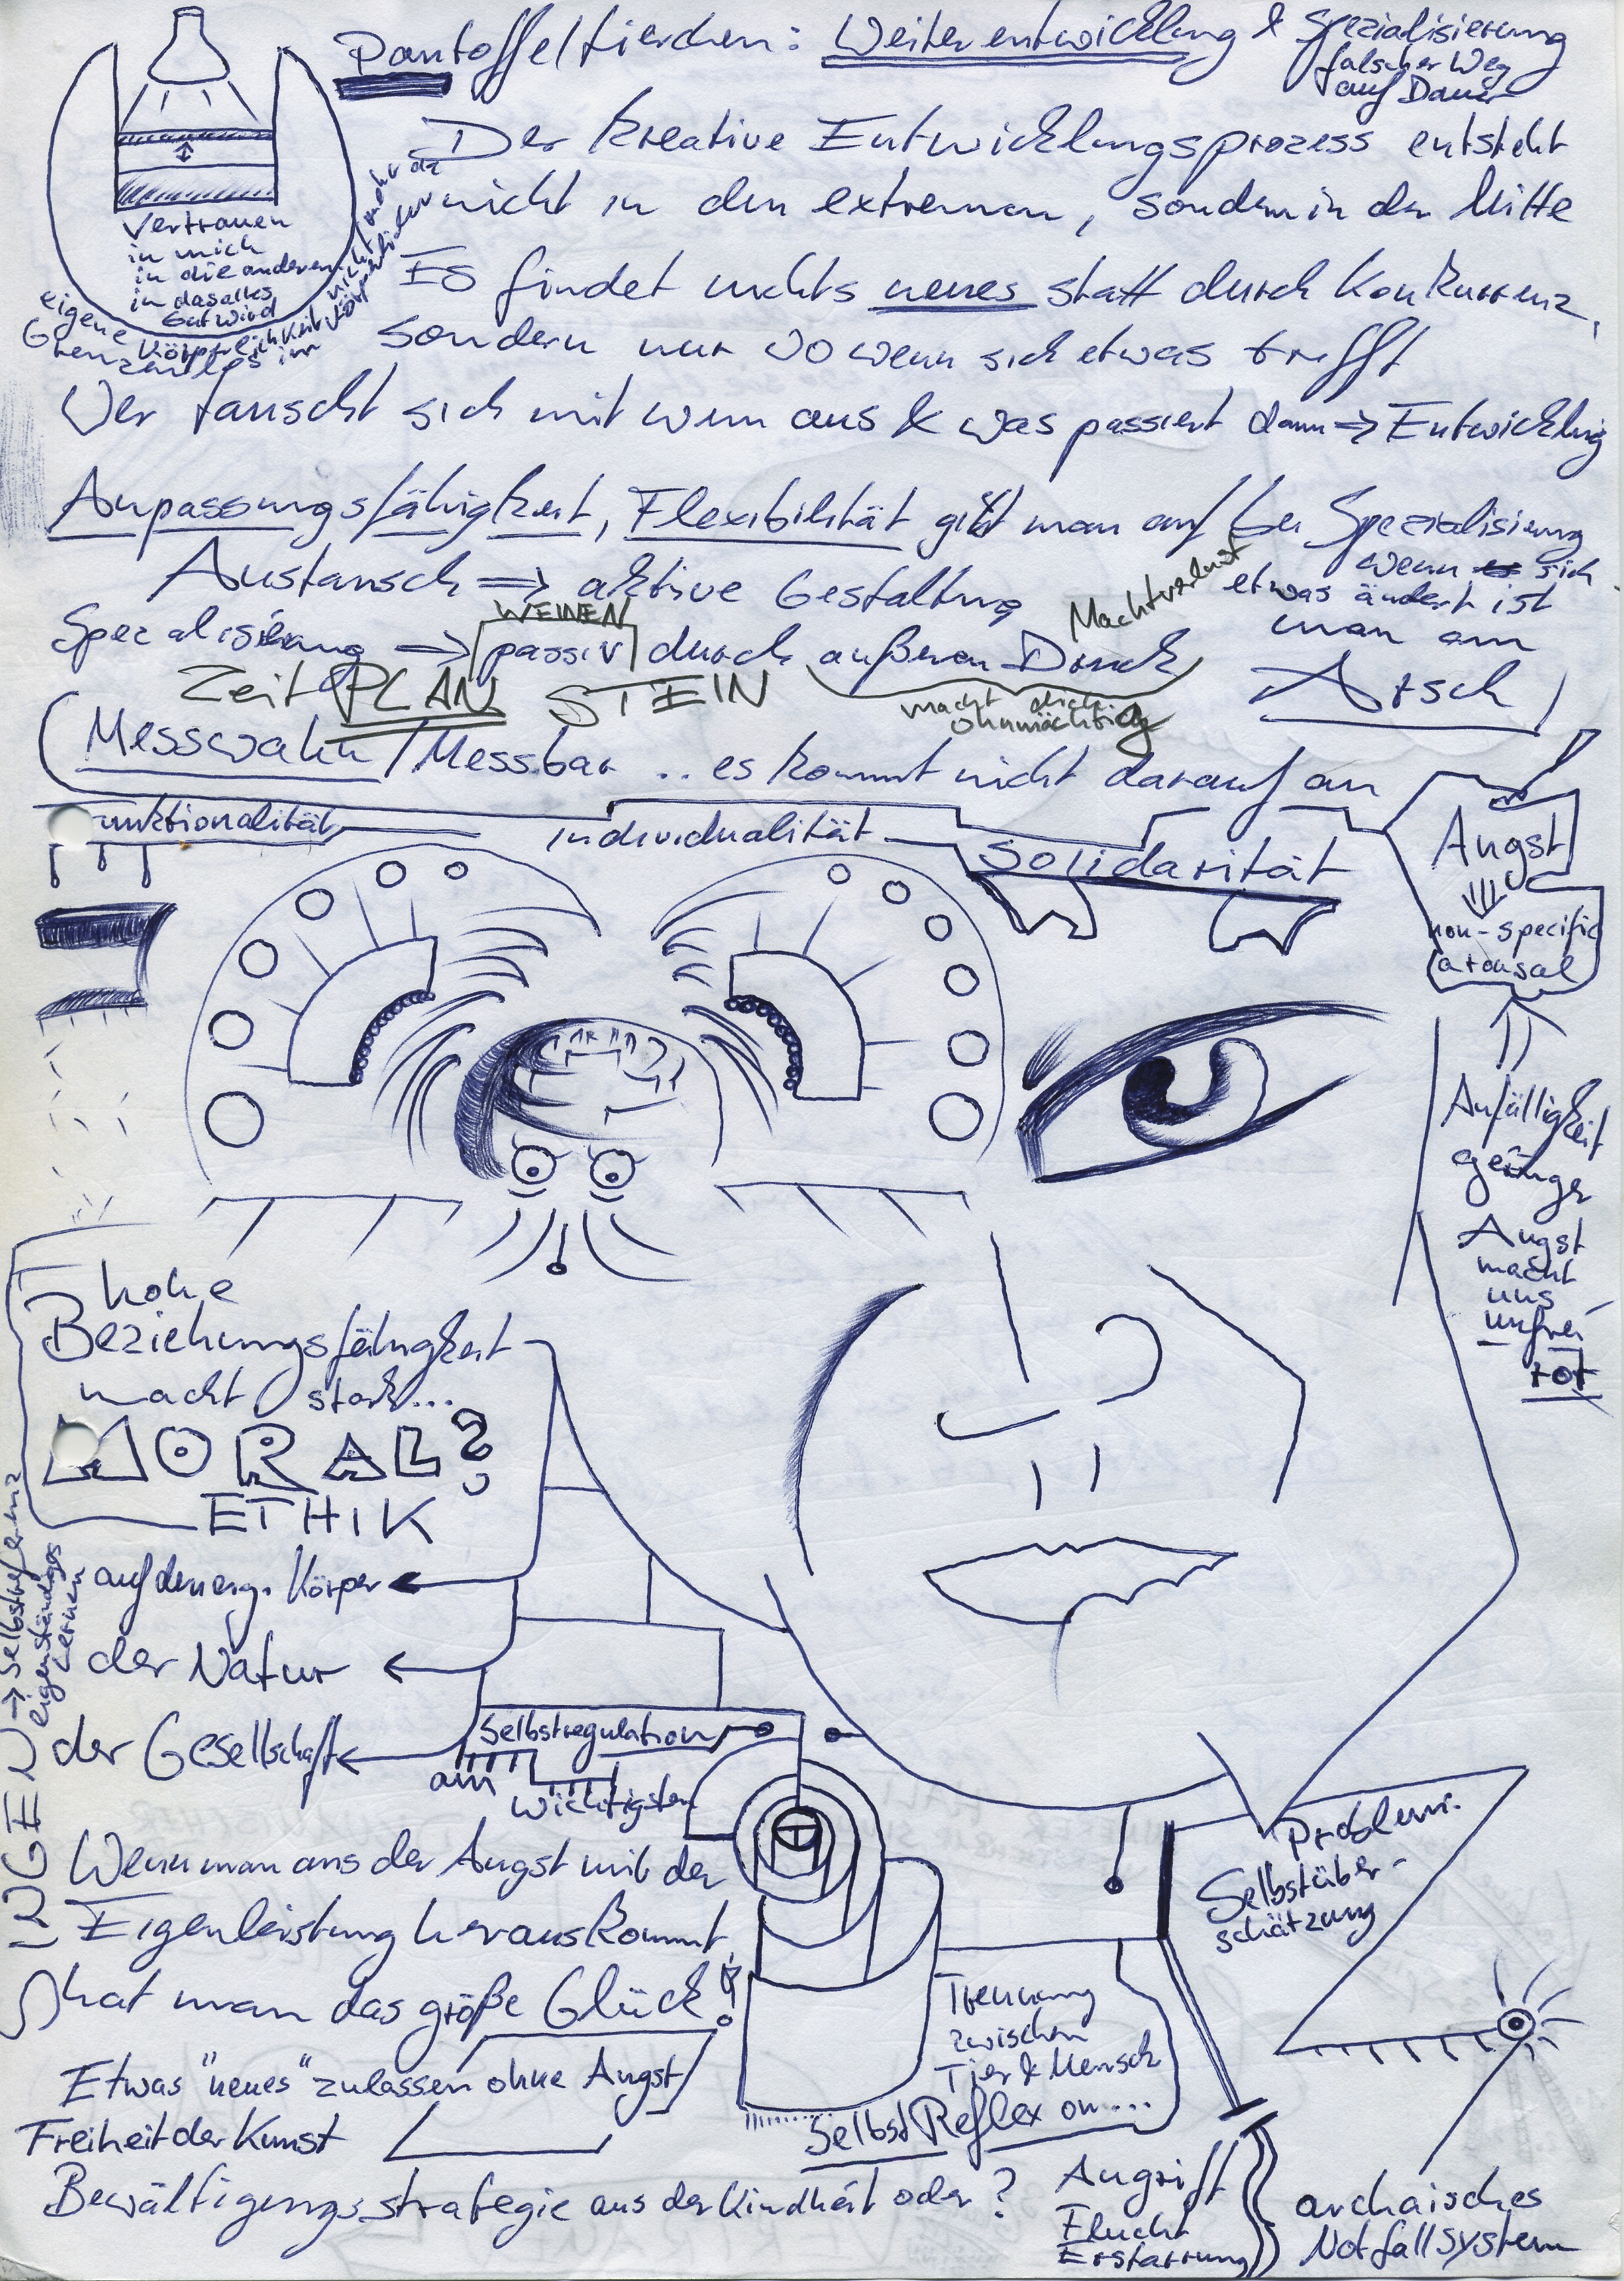 Pantoffeltierchen: Weiterentwicklung & Spezialisierung
falscher Weg
auf Dauer
Der kreative Entwicklungsprozess entsteht
nicht in den extremen, sondern in der Mitte
Es findet nichts neues statt durch Konkurrenz,
sondern nur wo wenn sich etwas trifft
Vertrauen
in mich
in die anderen
in das alles
Gut wird
eigene
Körperlichkeit
Grenzenlos im
nicht mehr da
Wer tauscht sich mit wem aus & was passiert dann => Entwicklung
Anpassungsfähigkeit, Flexibilität gibt man auf bei Spezialisierung
wenn sich
etwas ändert ist
man am
Arsch
Austausch => aktive Gestaltung
Machtverlust
WEINEN
Spezialisierung => passiv durch äußeren Druck
Zeit PLAN STEIN
macht dich
ohnmächtig
Messwahn / Messbar .. es kommt nicht darauf an
Funktionalität
Individualität
Solidarität
Angst
non-specific
arousal
Anfälligkeit
geringer
Angst
macht
uns
unfrei
tot
hohe
Beziehungsfähigkeit
macht stark...
MORAL?
ETHIK
auf den eig. Körper
der Natur
der Gesellschaft
Selbstregulation
am
wichtigsten
-> Selbstreferenz
eigenständiges
Lernen
Wenn man aus der Angst mit der
Eigenleistung herauskommt
hat man das größe Glück!
Etwas "neues" zulassen ohne Angst
Freiheit der Kunst
Bewältigungsstrategie aus der Kindheit oder?
Problem.
Selbstüber-
schätzung
Trennung
zwischen
Tier & Mensch
Selbst Reflexion...
Angriff
Flucht
Erstarrung
archaisches
Notfallsystem